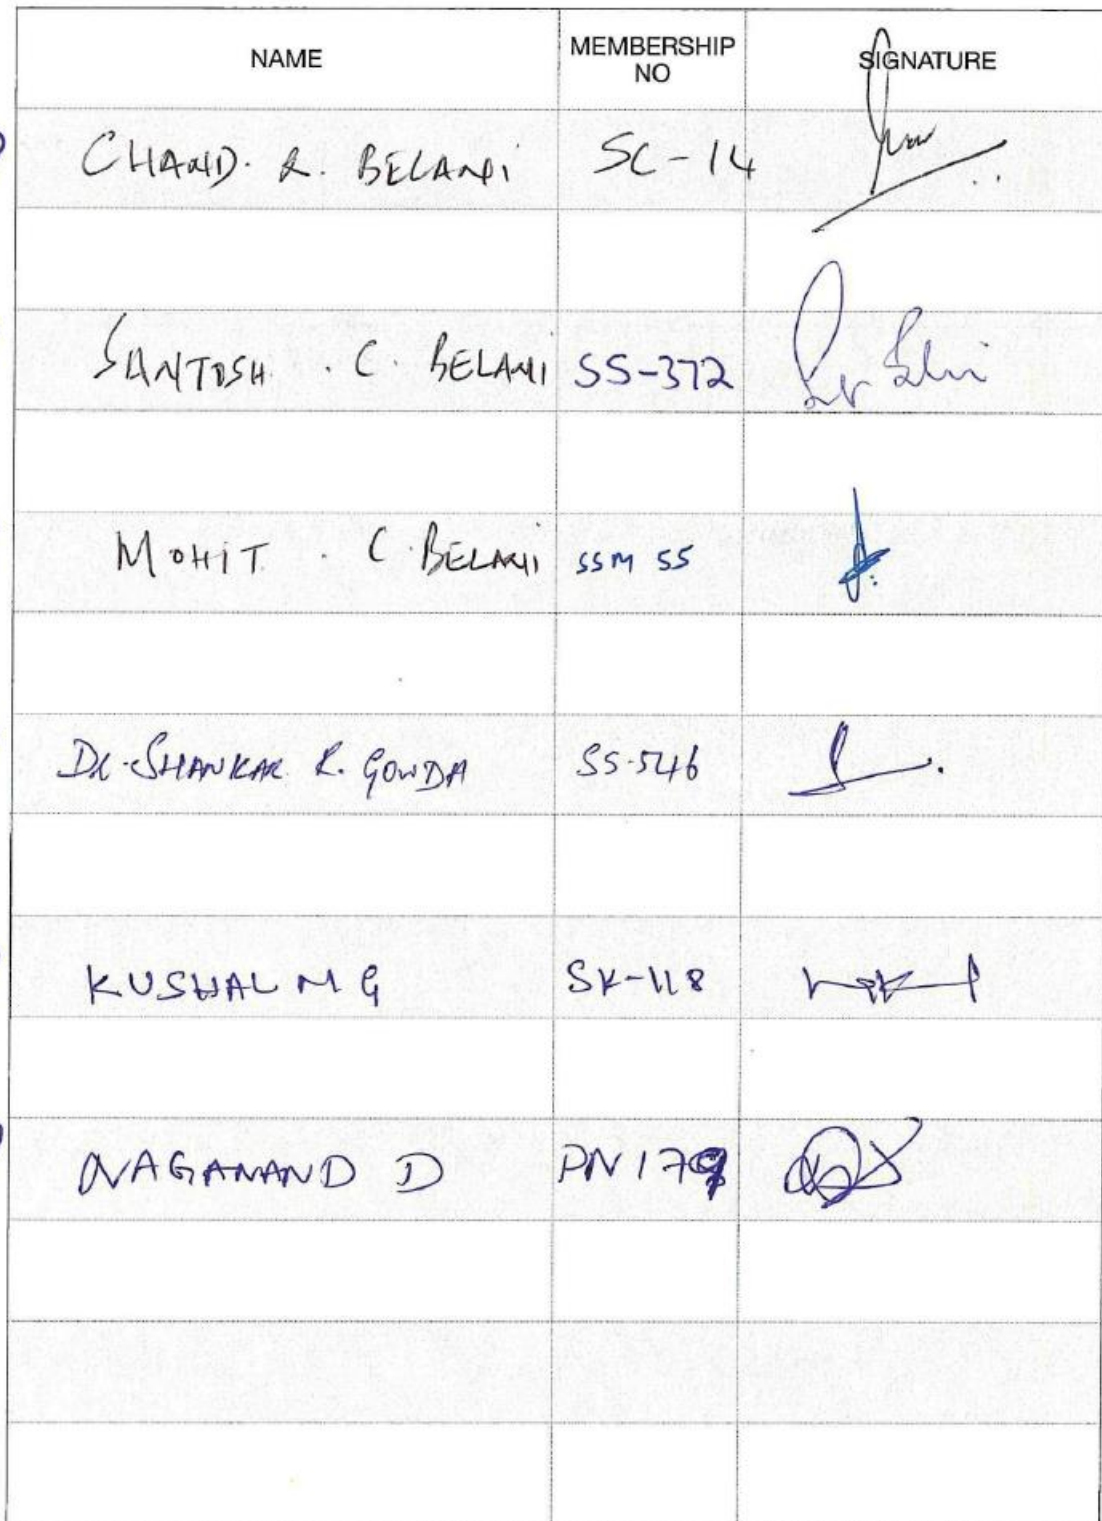 NAME MEMBERSHIP NO SIGNATURE
CHAND. R. BELANI SC-14
SANTOSH . C. BELANI SS-372
MOHIT . C. BELANI SSM 55
DR. SHANKAR R. GOWDA SS-546
KUSHAL M G SK-118
NAGANAND D PN 179